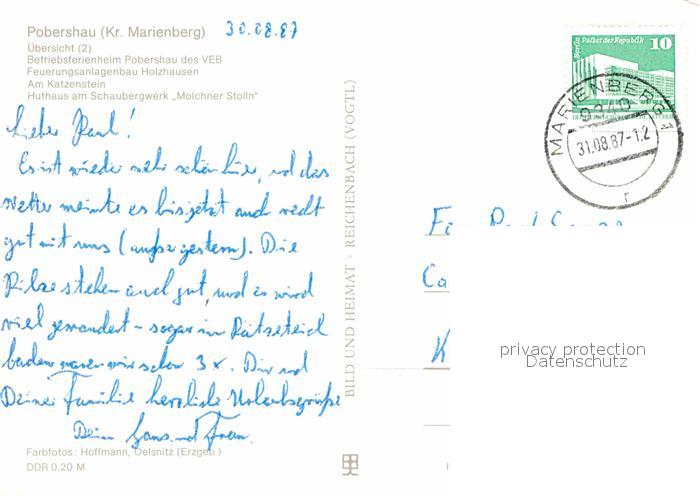 Pobershau (Kr. Marienberg) 30.08.87
Übersicht (2)
Betriebsferienheim Pobershau des VEB
Feuerungsanlagenbau Holzhausen
Am Katzenstein
Huthaus am Schaubergwerk „Molchner Stolln"
Lieber Paul!
Es ist wieder sehr schön hier, und das
Wetter meinte es bis jetzt auch recht
gut mit uns (außer gestern). Die
Pilze stehen auch gut, und es wird
viel gewandert – sogar im Rätzteich
baden waren wir schon 3x. Dir und
Deiner Familie herzliche Urlaubsgrüße
Dein Hans und Frau.
Farbfotos: Hoffmann, Oelsnitz (Erzgeb.)
DDR 0,20 M
BILD UND HEIMAT · REICHENBACH (VOGTL)
Berlin Palast der Republik 10
MARIENBERG 1
9340
31.08.87-12
r
Ca
K
privacy protection
Datenschutz